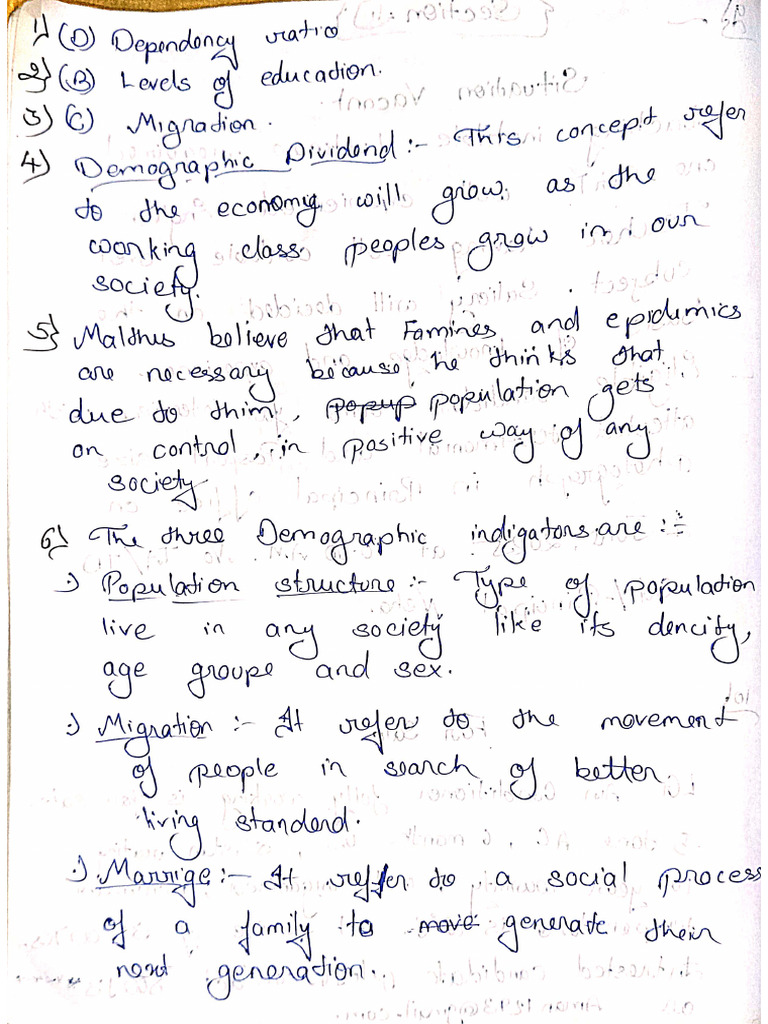 1) (D) Dependency ratio
2) (B) Levels of education.
3) (C) Migration.
4) Demographic Dividend :- This concept refer
to the economy will grow. as the
woorking class. peoples grow in our
society.
5) Malthus believe that Famines and epidemics
are necessary because he thinks that
due to thim, popup population gets
on control, in positive way of any
society
6) The three Demographic indigators are :-
:) Population structure :- Type of population
live in any society like its dencity,
age groupe and sex.
:) Migration :- It refer to the movement
of people in search of better
living standend.
:) Marrige :- It reffer to a social process
of a family to move generate their
next generation.